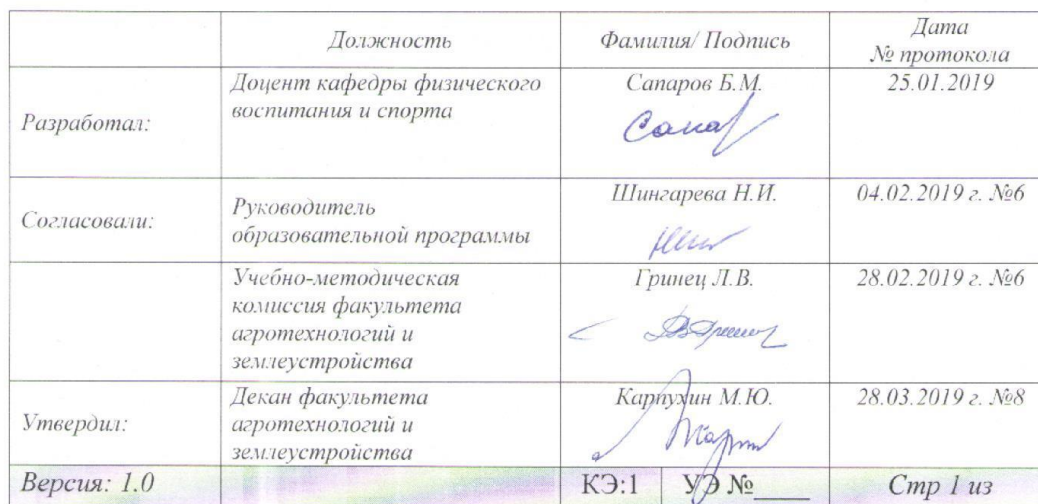 Должность
Фамилия/ Подпись
Дата
№ протокола
Разработал:
Доцент кафедры физического
воспитания и спорта
Сапаров Б.М.
25.01.2019
Согласовали:
Руководитель
образовательной программы
Шингарева Н.И.
04.02.2019 г. №6
Учебно-методическая
комиссия факультета
агротехнологий и
землеустройства
Гринец Л.В.
28.02.2019 г. №6
Утвердил:
Декан факультета
агротехнологий и
землеустройства
Карпухин М.Ю.
28.03.2019 г. №8
Версия: 1.0
КЭ:1
УЭ №____
Стр 1 из